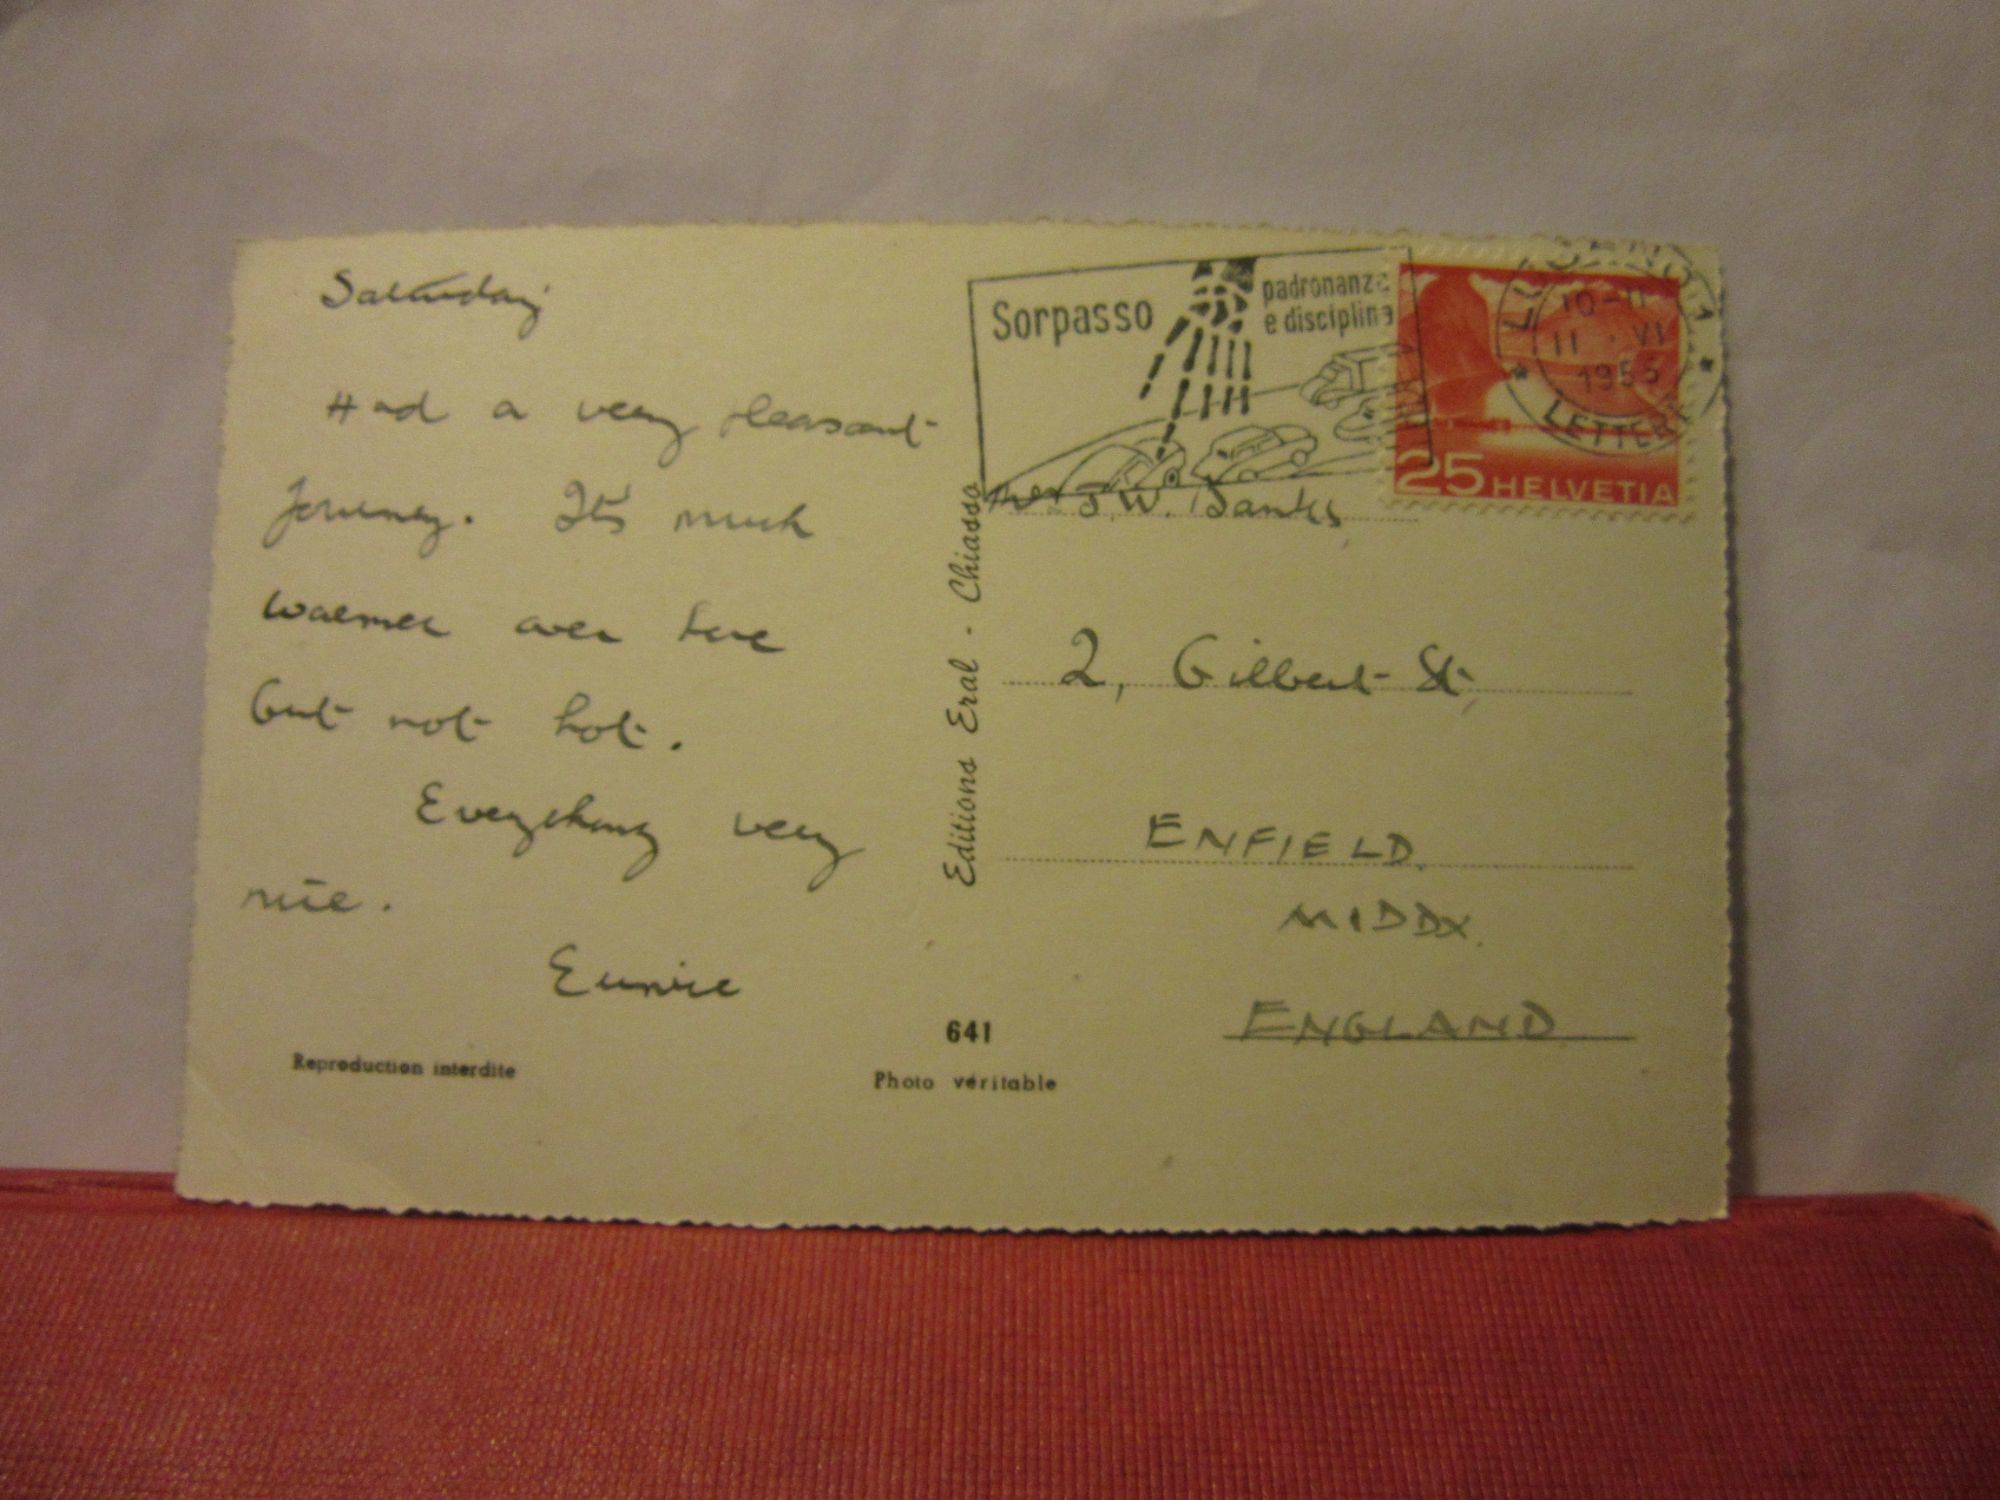 Saturday
Had a very pleasant
journey. It's much
warmer over here
but not hot.
Everything very
nice.
Eunice
Reproduction interdite
Editions Eral - Chiasso
641
Photo véritable
Sorpasso
padronanza
e disciplina
10-11
11 · VI
1955
LETTERE
25 HELVETIA
Mrs J.W. Danks
2, Gilbert St,
ENFIELD.
MIDDX.
ENGLAND